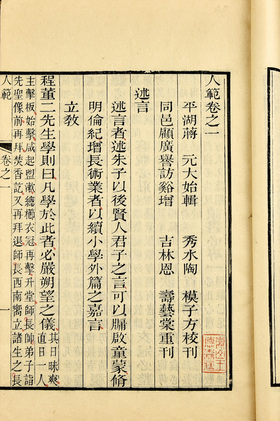 人範卷之一
平湖蔣　元大始輯　秀水陶　模子方校刊
同邑顧廣譽訪谿增　吉林恩　壽藝棠重刊
述言
述言者述朱子以後賢人君子之言可以牖啟童蒙脩
明倫紀增長術業者以續小學外篇之嘉言
立敎
程董二先生學則曰凡學於此者必嚴朔望之儀
其日昧爽
直日一人
主擊板始擊咸起盥漱總櫛衣冠再擊升堂師長帥弟子詣
先聖像前再拜焚香訖又再拜退師長西南嚮立諸生之長
人範　卷之一